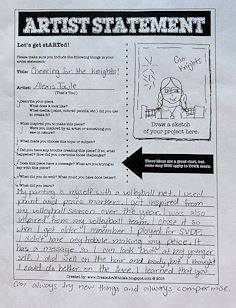 ARTIST STATEMENT
Let's get stARTed!
Please make sure you include the following things in your artist statement:
Title: Cheering for the Knights!
Artist: Alexis
(That's You!)
Go Knights
Draw a sketch
of your project here.
Describe your piece.
What does it look like?
What media (paint, colored pencils, etc.) did you use to create it?
What inspired you to make this piece?
Were you inspired by an artist or something you saw in nature?
What made you choose this topic or subject?
Did you have any trouble creating this piece? If so, what happened? How did you overcome those challenges?
Does this piece have a message? What are you trying to say with this piece?
What did you do well? What would you have done better?
These ideas are a great start, but
My painting is myself with a volleyball net. I used
paint and marks. I got inspired from
my volleyball season over the year. I was also
inspired from my volleyball team. I chose it
when I got after I played for SVDP.
I didn't have any trouble making my piece. It
has a message so I can look back at my younger
self. I did well on the hair and body but I thought
I could do better on the face. I learned that you
can always try new things and always